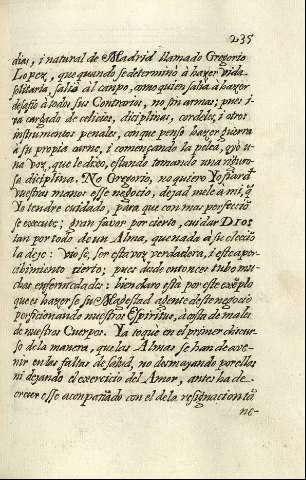 235
dias, i natural de Madrid llamado Gregorio
Lopez, que quando se determinò à hazer vida
solitaria, saliò al campo, como quien salia à hazer
desafio à todos sus Contrarios, no sin armas; pues i-
va cargado de celicios, diciplinas, cordeles, i otros
instrumentos penales, con que pensò hazer guerra
a su propia carne, i començando la pelea, oyò u-
na voz, que le dixo, estando tomando una
sa diciplina. No Gregorio, no quiero Yo fiar de
vuestras manos esse negocio, dejad mele a mi, que
Yo tendre cuidado, para que con mas perfecciō
se execute; gran favor por cierto, cuidar DIOS
tan por todo de un Alma, que nada a su elecciō
la dejò: Viose, ser esta voz verdadera, i este
cibimiento cierto; pues desde entonces tubo mu-
chas enfermedades: bien claro està por este exēplo
que es hazerse su Magestad agente deste negocio
porficionando nuestros Espiritus, à costa de males
de nuestros Cuerpos. Ya toquè en el primer
so de la manera, que las Almas se han de ave-
nir en las faltas de salud, no desmayando por ellas
ni dejando el exercicio del Amor, antes ha de
crecer esse acompañado con el de la resignacion tā
ne-